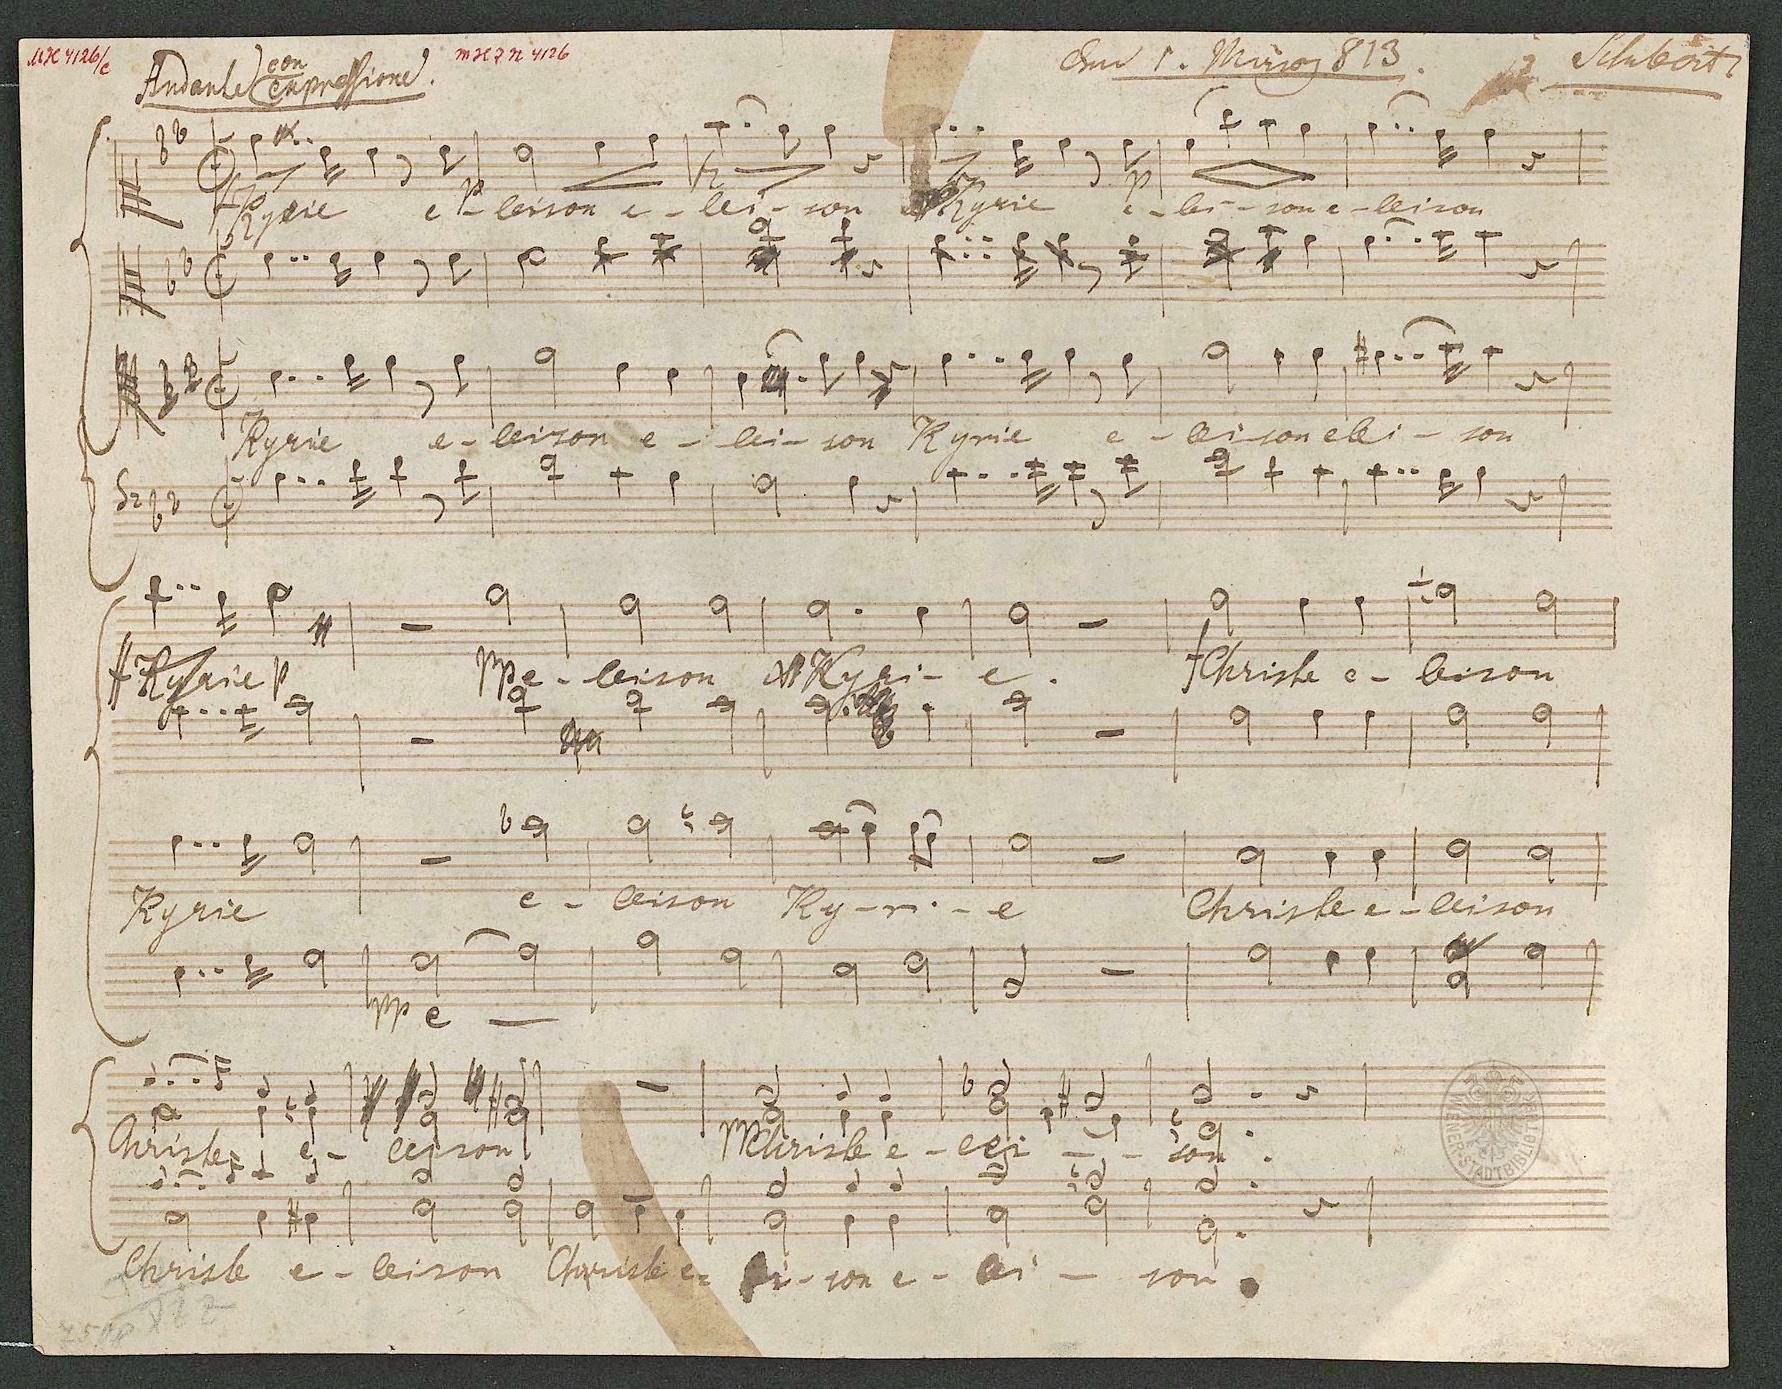 MH 4126/c
MHZN 4126
Andante con expressione.
Den 1. März 813.
Schubert
Kyrie e-leison e-lei-son Kyrie e-lei-son e-leison
Kyrie e-leison e-lei-son Kyrie e-leison elei-son
Kyrie pp e-leison Kyri-e. f Christe e-leison
Kyrie e-leison Ky-ri-e Christe e-leison
pp e
Christe e-leison pp Christe e-lei-son.
Christe e-leison Christe e-lei-son e-lei-son.